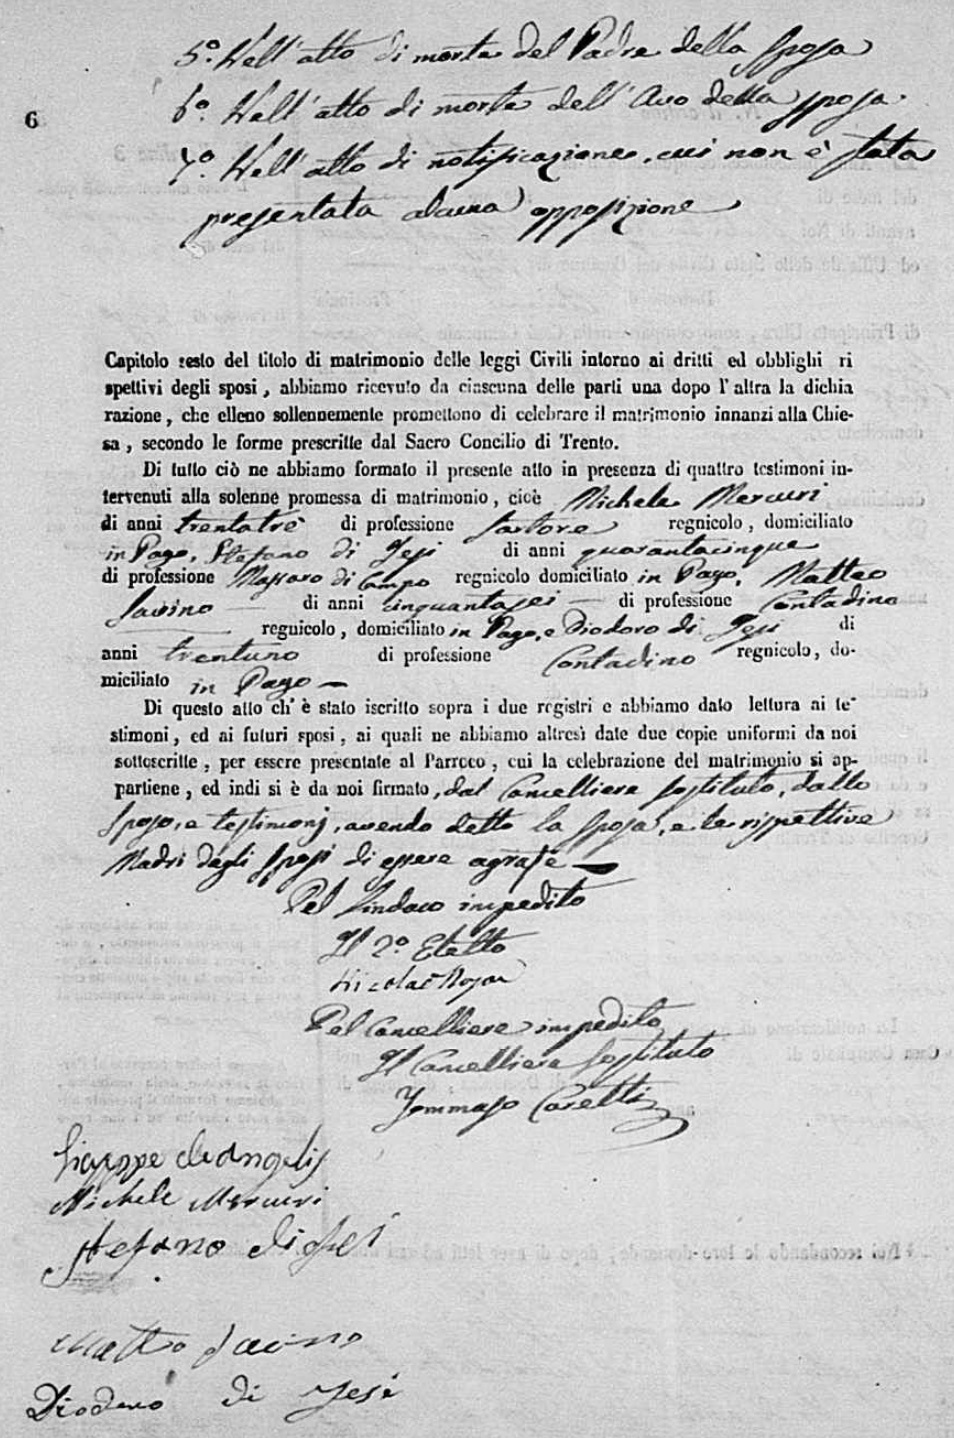 5.º Nell'atto di morte del Padre della Sposa
6º. Nell'atto di morte dell'Avo della Sposa.
6
7º. Nell'atto di notificazione, cui non è stata
presentata alcuna opposizione
Capitolo sesto del titolo di matrimonio delle leggi Civili intorno ai dritti ed obblighi ri
spettivi degli sposi, abbiamo ricevuto da ciascuna delle parti una dopo l'altra la dichia
razione, che elleno sollennemente promettono di celebrare il matrimonio innanzi alla Chie-
sa, secondo le forme prescritte dal Sacro Concilio di Trento.
Di tutto ciò ne abbiamo formato il presente atto in presenza di quattro testimoni in-
tervenuti alla solenne promessa di matrimonio, cioè Michele Mercuri
di anni trentatrè di professione Sartore regnicolo, domiciliato
in Pago, Stefano di Jesi di anni quarantacinque
di professione Massaro di Campo regnicolo domiciliato in Pago, Matteo
Savino — di anni cinquantasei — di professione Contadino
— regnicolo, domiciliato in Pago, e Diodoro di Jesi di
anni trentuno di professione Contadino regnicolo, do-
miciliato in Pago —
Di questo atto ch'è stato iscritto sopra i due registri e abbiamo dato lettura ai te-
stimoni, ed ai futuri sposi, ai quali ne abbiamo altresì date due copie uniformi da noi
sottoscritte, per essere presentate al Parroco, cui la celebrazione del matrimonio si ap-
partiene, ed indi si è da noi firmato, dal Cancelliere sostituto, dallo
Sposo, e testimonj, avendo detto la Sposa, e le rispettive
Madri degli Sposi di essere agrafe —
Pel Sindaco impedito
Il 2º. Eletto
Nicola
Pel Cancelliere impedito
Il Cancelliere Sostituto
Tommaso Coretti
Giuseppe de Angelis
Michele Mercuri
Stefano di Jesi
Matteo Savino
Diodoro di Jesi